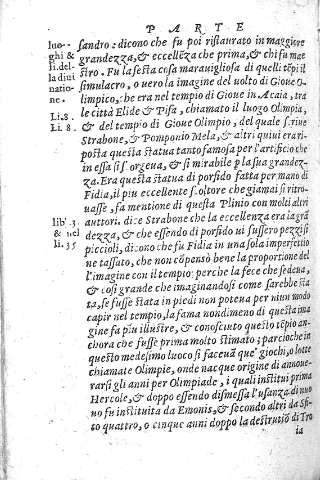 PARTE
luo-
ghi &
li.del-
la diui
natio-
ne.
Li.8.
Li.8.
lib. 3.
& nel
li.35
sandro: dicono che fu poi ristaurato in maggiore
grandezza, & eccellẽza che prima, & chi fu mae
stro. Fu la sesta cosa marauigliosa di quelli tẽpi il
simulacro, o uero la imagine del uolto di Gioue O-
limpico, che era nel tempio di Gioue in Acaia, tra
le città Elide & Pisa, chiamato il luogo Olimpia,
& del tempio di Gioue Olimpio, del quale scriue
Strabone, & Pomponio Mela, & altri qui ui era ri-
posta questa statua tanto famosa per l'artificio che
in essa si scorgeua, & si mirabile p la sua grandez-
za. Era questa statua di porfido fatta per mano di
Fidia, il piu eccellente scoltore che giamai si ritro-
uasse, fa mentione di questa Plinio con molti altri
auttori. dice Strabone che la eccellenza era la grã
dezza, & che essendo di porfido ui fussero pezzi si
piccioli, dicono che fu Fidia in una sola imperfettio
ne tassato, che non cõpensò bene la proportione del
l'imagine con il tempio: perche la fece che sedeua,
& cosi grande che imaginandosi come sarebbe sta
ta, se fusse stata in piedi non poteua per niun modo
capir nel tempio, la fama nondimeno di questa ima
gine fa piu illustre, & conosciuto questo tẽpio an-
chora che fusse prima molto stimato; percioche in
questo medesimo luoco si faceuã que' giochi, o lotte
chiamate Olimpie, onde nacque origine di annoue
rarsi gli anni per Olimpiade, i quali instituì prima
Hercole, & doppo essendo dismessa l'usanza di nuo
uo fu instituita da Emonis, & secondo altri da Sfi-
to quattro, o cinque anni doppo la destrutiõ di Tro
ia